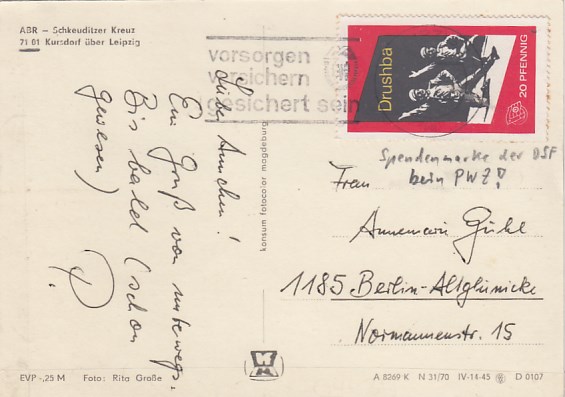 ABR – Schkeuditzer Kreuz
7101 Kursdorf über Leipzig
vorsorgen
versichern
gesichert sein
Drushba
20 PFENNIG
Spendenmarke der DSF
beim PWZ!
Liebe Annchen!
Ein Gruß von unterwegs.
Bis bald (schon
gewesen)
P.
konsum fotocolor magdeburg
Frau
Annemarie Gühl
1185 Berlin-Altglienicke
Normannenstr. 15
EVP -,25 M Foto: Rita Große
A 8269 K N 31/70 IV-14-45 D 0107